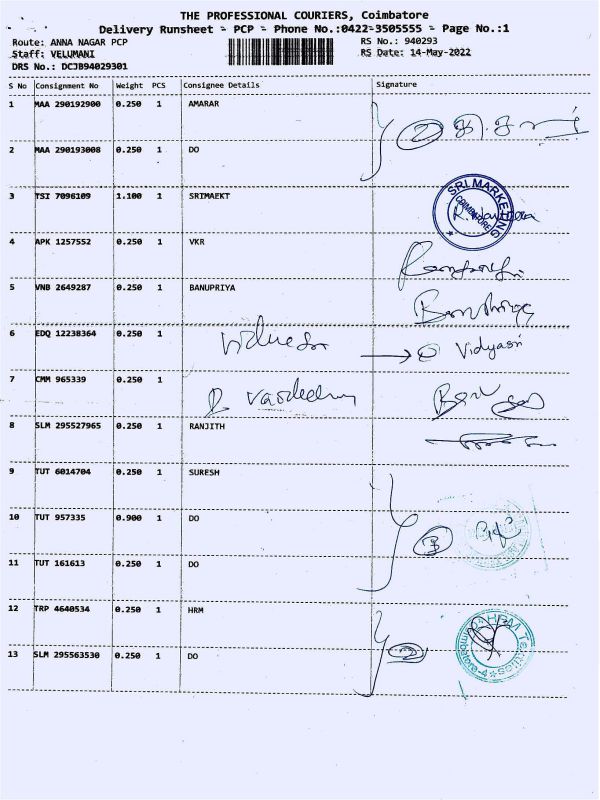 THE PROFESSIONAL COURIERS, Coimbatore
Delivery Runsheet - PCP - Phone No.:0422-3505555 - Page No.:1
Route: ANNA NAGAR PCP RS No.: 940293
Staff: VELUMANI RS Date: 14-May-2022
DRS No.: DCJB94029301
S No Consignment No Weight PCS Consignee Details Signature
1 MAA 290192900 0.250 1 AMARAR
2
2 MAA 290193008 0.250 1 DO
3 TSI 7096109 1.100 1 SRIMAEKT
SRI MARKETING COIMBATORE
4 APK 1257552 0.250 1 VKR
5 VNB 2649287 0.250 1 BANUPRIYA
6 EDQ 12238364 0.250 1 Vidyasri
7 CMM 965339 0.250 1
8 SLM 295527965 0.250 1 RANJITH
9 TUT 6014704 0.250 1 SURESH
10 TUT 957335 0.900 1 DO
3
11 TUT 161613 0.250 1 DO
12 TRP 4640534 0.250 1 HRM
HRM Textiles Coimbatore-4
13 SLM 295563530 0.250 1 DO
2